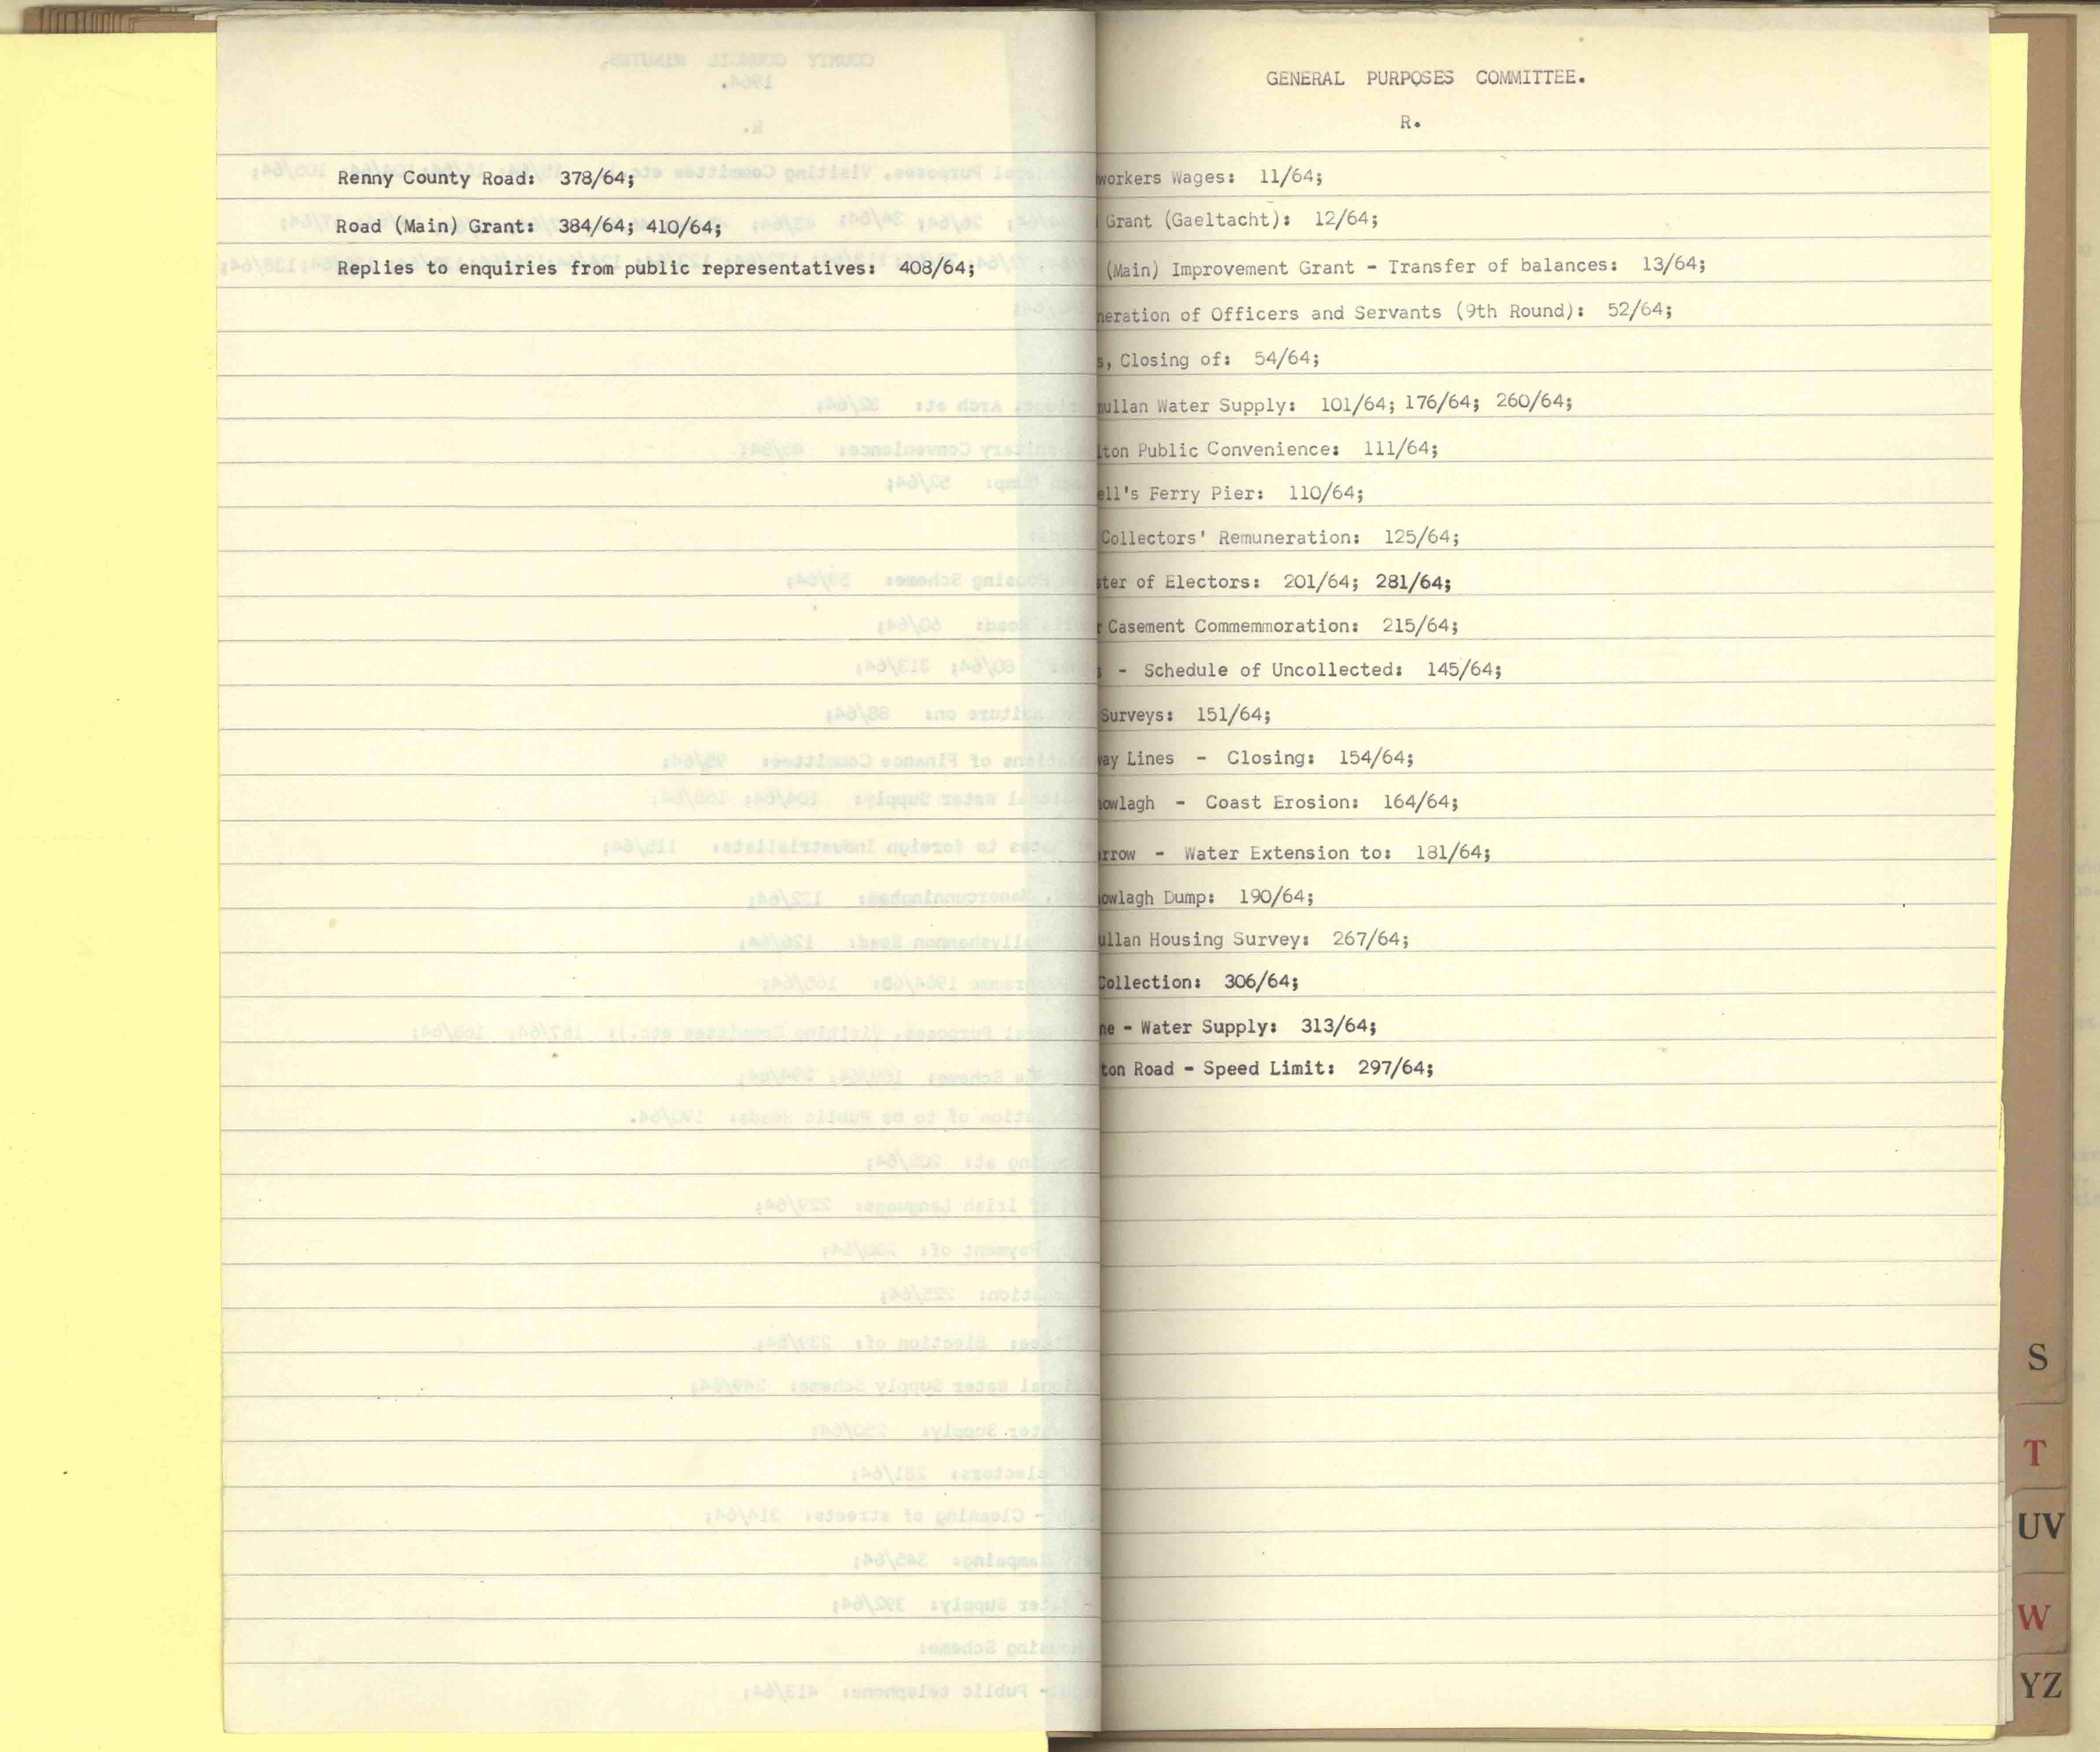 Renny County Road: 378/64;
Road (Main) Grant: 384/64; 410/64;
Replies to enquiries from public representatives: 408/64;
GENERAL PURPOSES COMMITTEE.
R.
workers Wages: 11/64;
Grant (Gaeltacht): 12/64;
(Main) Improvement Grant - Transfer of balances: 13/64;
neration of Officers and Servants (9th Round): 52/64;
s, Closing of: 54/64;
mullan Water Supply: 101/64; 176/64; 260/64;
lton Public Convenience: 111/64;
ell's Ferry Pier: 110/64;
Collectors' Remuneration: 125/64;
ster of Electors: 201/64; 281/64;
r Casement Commemmoration: 215/64;
s - Schedule of Uncollected: 145/64;
Surveys: 151/64;
way Lines - Closing: 154/64;
nowlagh - Coast Erosion: 164/64;
rrow - Water Extension to: 181/64;
owlagh Dump: 190/64;
ullan Housing Survey: 267/64;
Collection: 306/64;
ne - Water Supply: 313/64;
ton Road - Speed Limit: 297/64;
S
T
UV
W
YZ